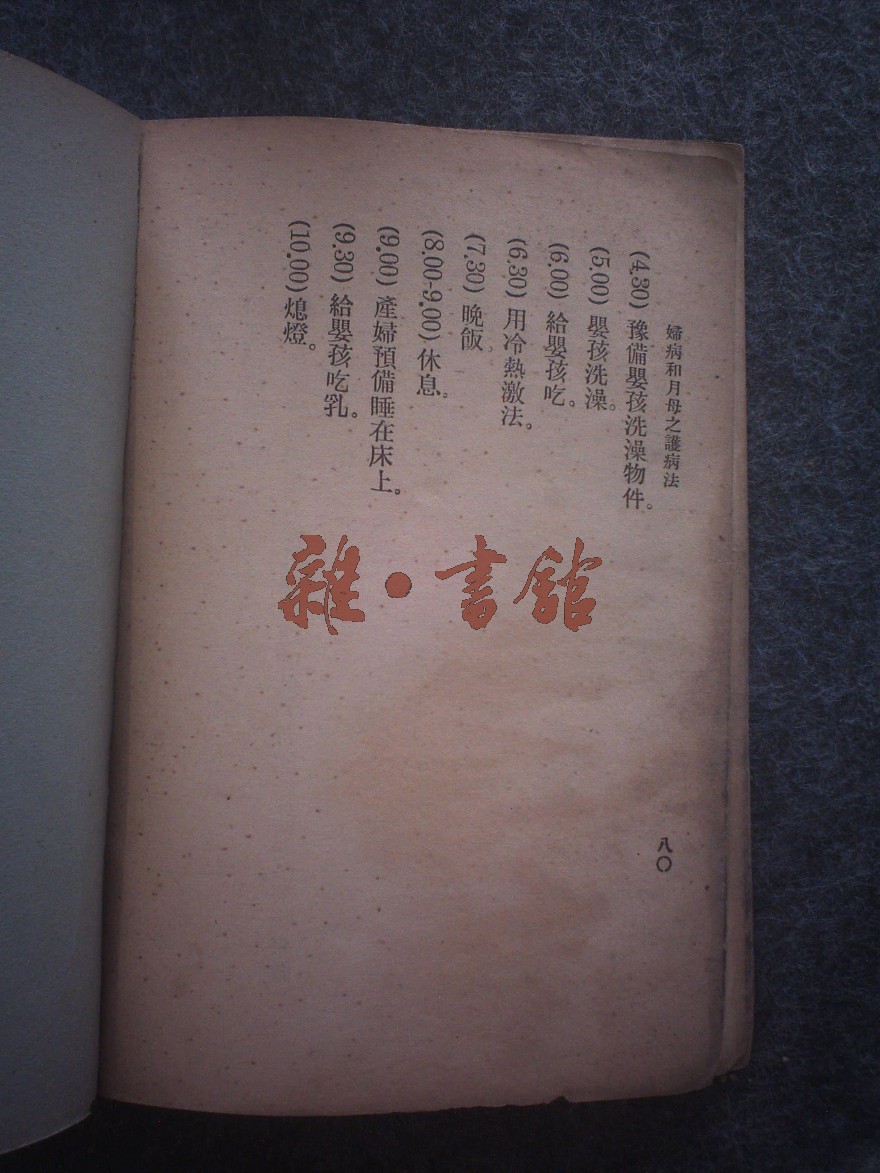 婦病和月母之護病法
(4.30) 豫備嬰孩洗澡物件。
(5.00) 嬰孩洗澡。
(6.00) 給嬰孩吃。
(6.30) 用冷熱激法。
(7.30) 晚飯。
(8.00-9.00) 休息。
(9.00) 產婦預備睡在床上。
(9.30) 給嬰孩吃乳。
(10.00) 熄燈。
八〇
雜·書館